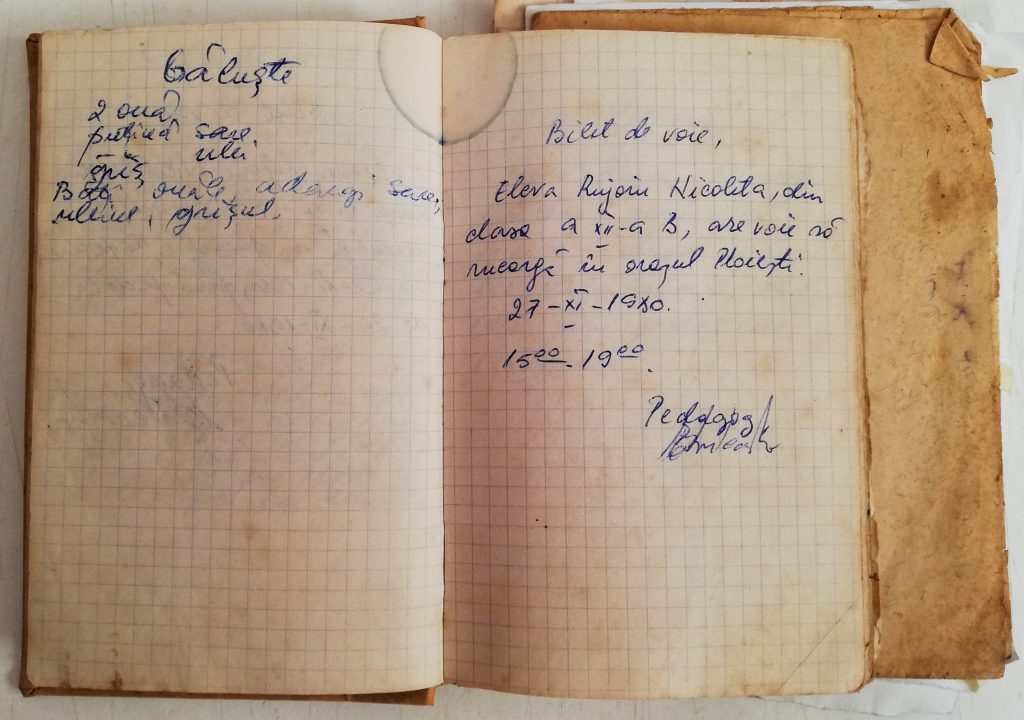 Găluște
2 ouă,
puțină sare
ulei
griș,
Bați ouăle adaugi sare,
uleiul, grișul.
Bilet de voie,
Eleva Rujoiu Nicoleta, din
clasa a XII-a B, are voie să
meargă în orașul Ploiești.
27-XI-1980.
15⁰⁰-19⁰⁰.
Pedagog